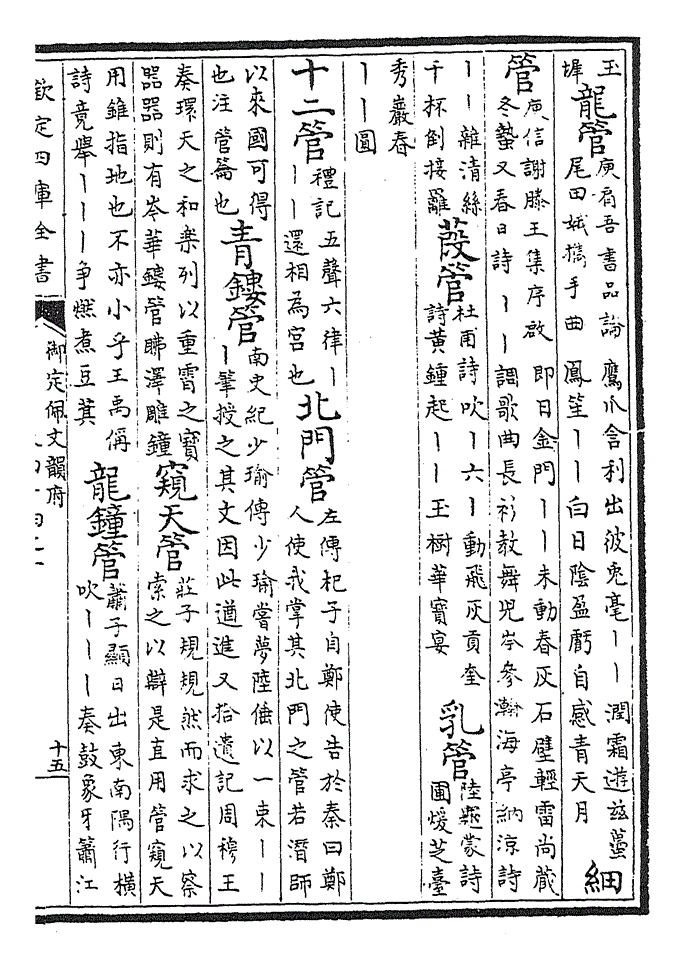 玉
墀
龍管
庾肩吾書品論 鷹爪含利出波兎毫丨丨潤霜遊兹蠆
尾田娥擕手曲 鳳笙丨丨白日陰盈虧自感青天月
細
管
庾信謝滕王集序啟 即日金門丨丨未動春灰石壁輕雷尚藏
冬蟄又春日詩 丨丨調歌曲長衫教舞兒岑參瀚海亭納涼詩
丨丨雜清絲
千杯倒接䍦
葭管
杜甫詩吹丨六丨動飛灰貢奎
詩黃鍾起丨丨玉樹華寶宴
乳管
陸龜蒙詩
圃煖芝臺
秀巖春
丨丨圓
十二管
禮記五聲六律丨
丨丨還相為宮也
北門管
左傳杞子自鄭使告於秦曰鄭
人使我掌其北門之管若潛師
以來國可得
也注管籥也
青鏤管
南史紀少瑜傳少瑜嘗夢陸倕以一束丨丨
丨筆授之其文因此遒進又拾遺記周穆王
奏環天之和樂列以重霄之寶
器器則有岑華鏤管䀢澤雕鐘
窺天管
莊子規規然而求之以察
索之以辯是直用管窺天
用錐指地也不亦小乎王禹偁
詩竟舉丨丨丨争燃煮豆萁
龍鐘管
蕭子顯日出東南隅行橫
吹丨丨丨奏鼓象牙簫江
欽定四庫全書
御定佩文韻府
十五